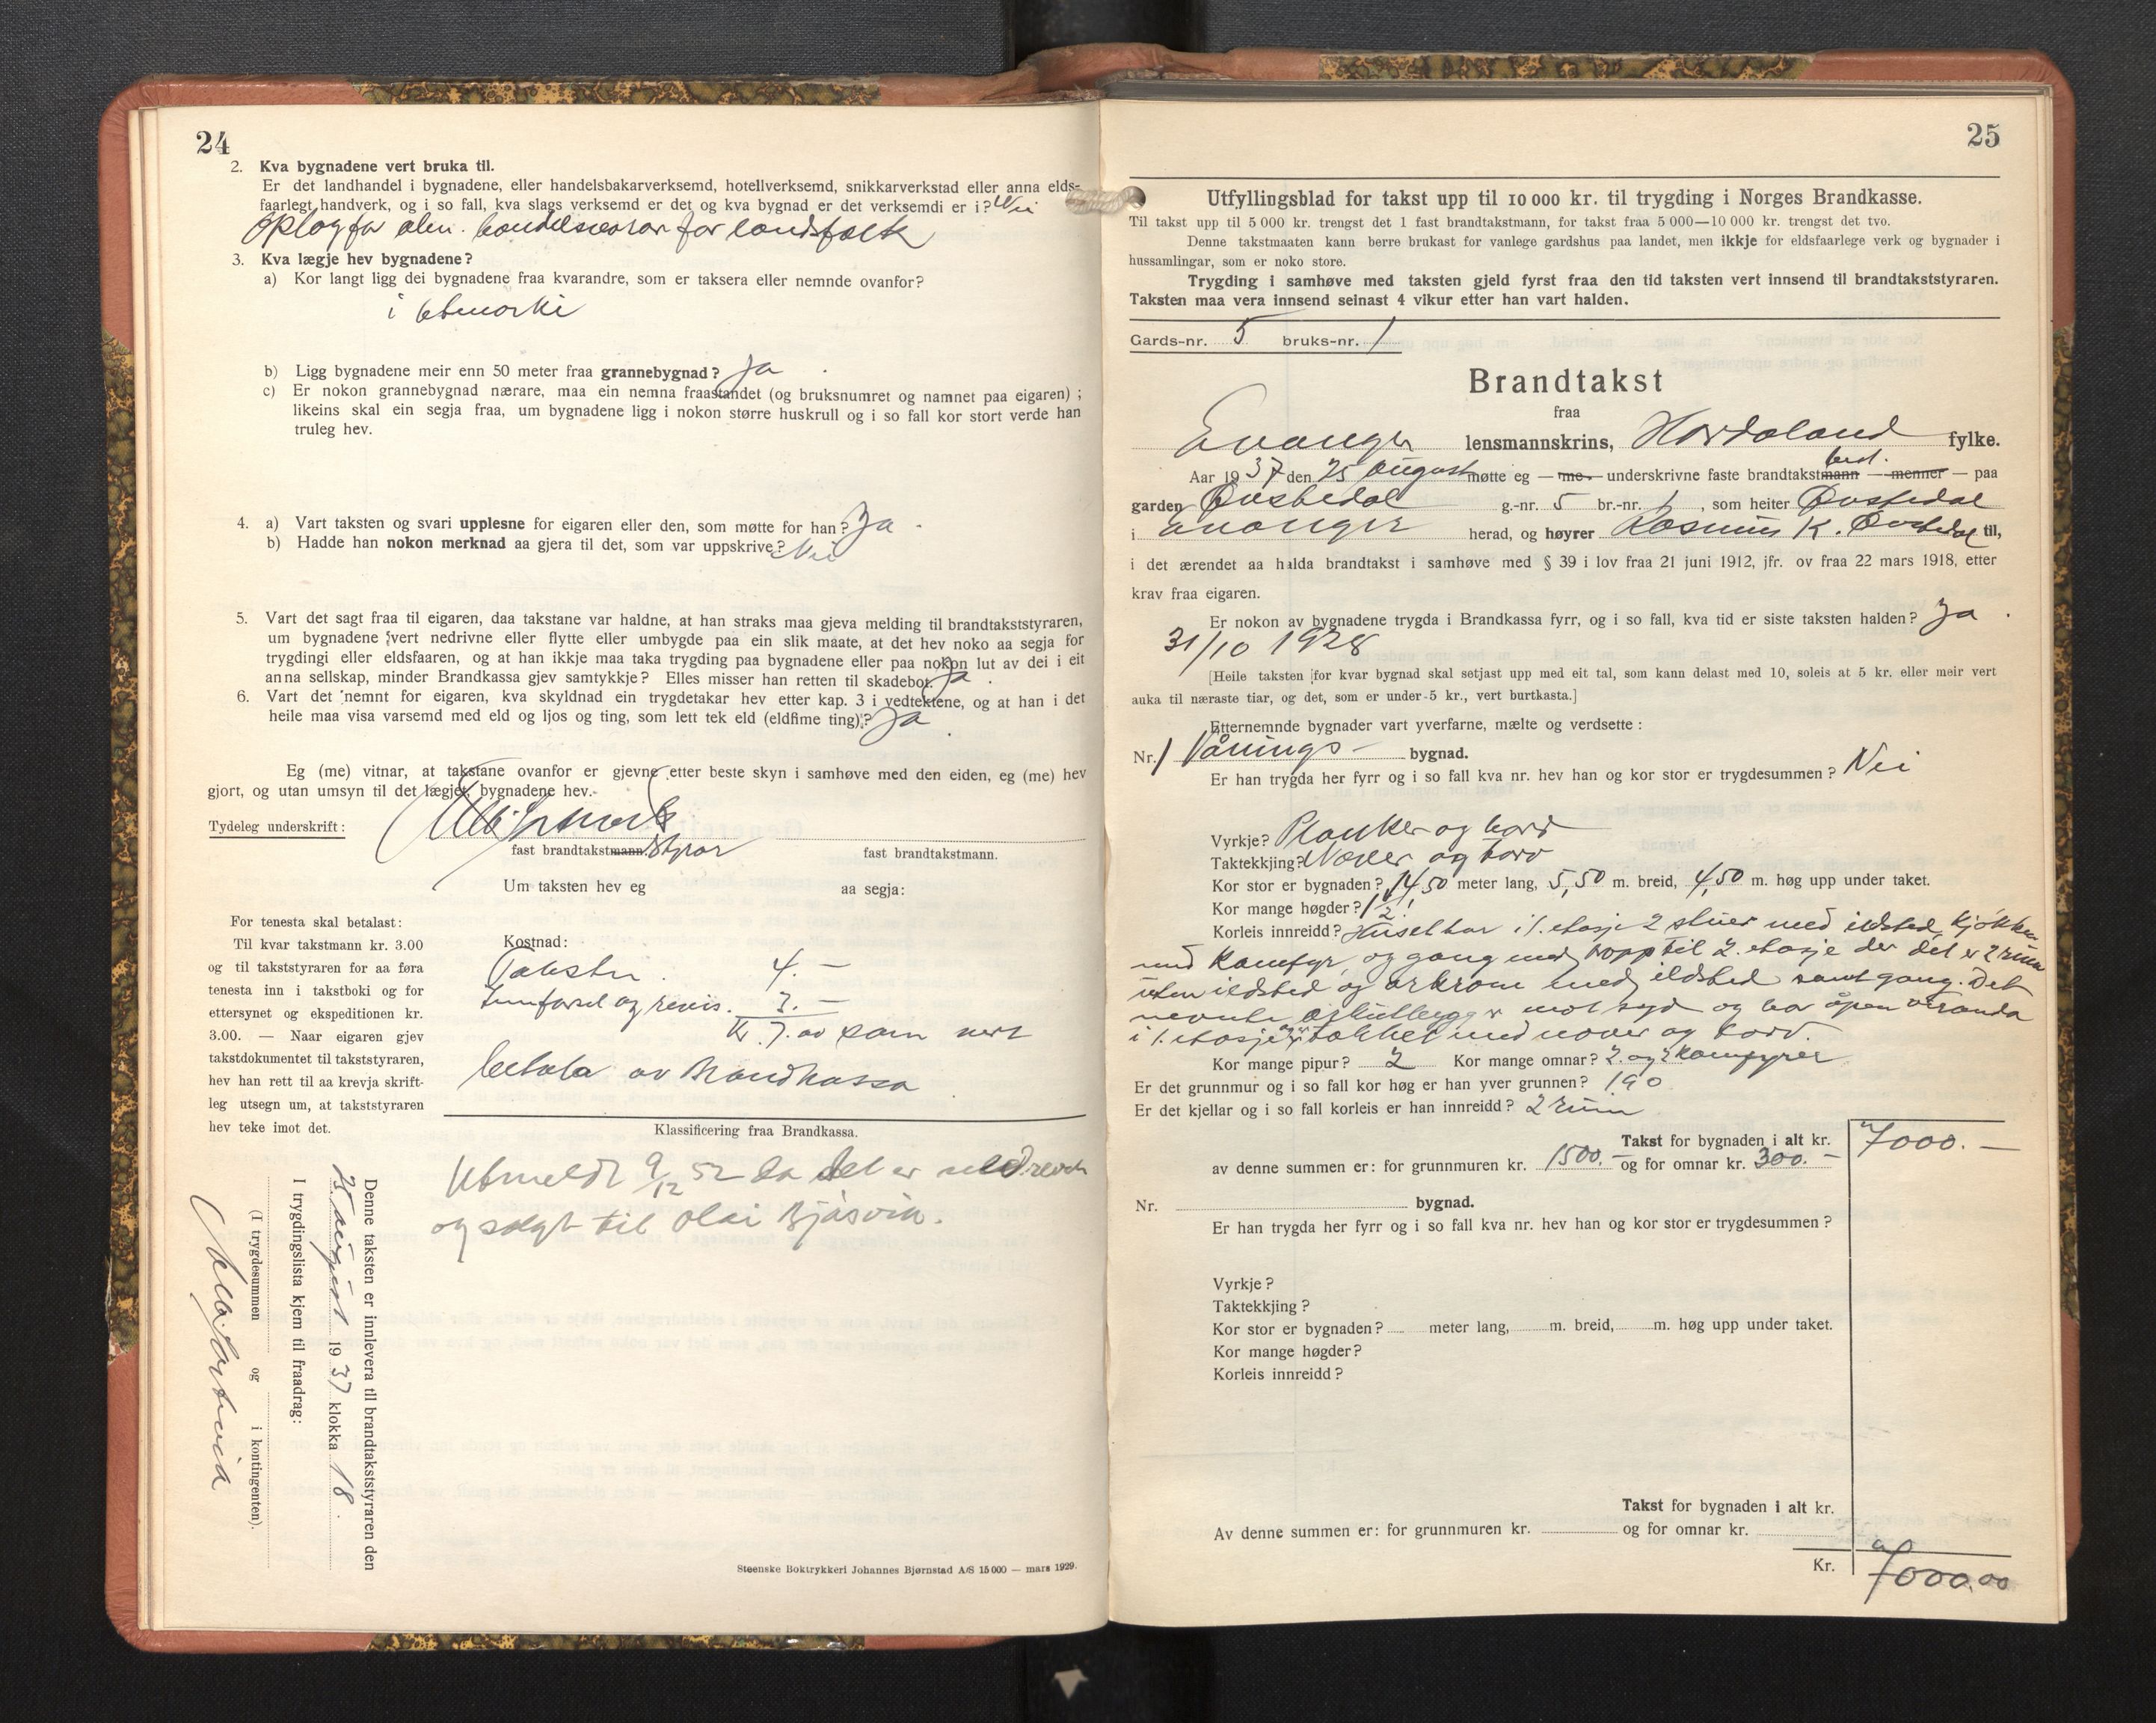 24
2. Kva bygnadene vert bruka til.
Er det landhandel i bygnadene, eller handelsbakarverksemd, hotellverksemd, snikkarverkstad eller anna elds-
faarlegt handverk, og i so fall, kva slags verksemd er det og kva bygnad er det verksemdi er i? Nei
Oplag for alm. handelsvarar for landsfolk
3. Kva lægje hev bygnadene?
a) Kor langt ligg dei bygnadene fraa kvarandre, som er taksera eller nemnde ovanfor?
i utmarki
b) Ligg bygnadene meir enn 50 meter fraa grannebygnad? Ja
c) Er nokon grannebygnad nærare, maa ein nemna fraastandet (og bruksnumret og namnet paa eigaren) ;
likeins skal ein segja fraa, um bygnadene ligg i nokon større huskrull og i so fall kor stort verde han
truleg hev.
4. a) Vart taksten og svari upplesne for eigaren eller den, som møtte for han? Ja
b) Hadde han nokon merknad aa gjera til det, som var uppskrive? Nei
5. Vart det sagt fraa til eigaren, daa takstane var haldne, at han straks maa gjeva melding til brandtakststyraren,
um bygnadene vert nedrivne eller flytte eller umbygde paa ein slik maate, at det hev noko aa segja for
trygdingi eller eldsfaaren, og at han ikkje maa taka trygding paa bygnadene eller paa nokon lut av dei i eit
anna sellskap, minder Brandkassa gjev samtykkje? Elles misser han retten til skadebot. Ja
6. Vart det nemnt for eigaren, kva skyldnad ein trygdetakar hev etter kap. 3 i vedtektene, og at han i det
heile maa visa varsemd med eld og ljos og ting, som lett tek eld (eldfime ting)? Ja
Eg (me) vitnar, at takstane ovanfor er gjevne etter beste skyn i samhøve med den eiden, eg (me) hev
gjort, og utan umsyn til det lægjet, bygnadene hev.
Tydeleg underskrift:
fast brandtakstmann. styrar fast brandtakstmann.
Um taksten hev eg aa segja:
For tenesta skal betalast:
Til kvar takstmann kr. 3.00
og til takststyraren for aa føra
tenesta inn i takstboki og for
ettersynet og ekspeditionen kr.
3.00. — Naar eigaren gjev
takstdokumentet til takststyraren,
hev han rett til aa krevja skrift-
leg utsegn um, at takststyraren
hev teke imot det.
Kostnad:
Taksten. 4. —
Innførsel og revis. 3. —
Kr. 7. — som vert
betala av Brandkassa
Klassificering fraa Brandkassa.
Utmeldt 9/12 52 da det er nedrevet
og solgt til Olai Bjåsvik.
Denne taksten er innlevera til brandtakststyraren den
25 august 1937 klokka 18.
I trygdingslista kjem til fraadrag:
(I trygdesummen og i kontingenten).
Steenske Boktrykkeri Johannes Bjørnstad A/S 15 000 — mars 1929.
25
Utfyllingsblad for takst upp til 10 000 kr. til trygding i Norges Brandkasse.
Til takst upp til 5 000 kr. trengst det 1 fast brandtakstmann, for takst fraa 5 000—10 000 kr. trengst det tvo.
Denne takstmaaten kann berre brukast for vanlege gardshus paa landet, men ikkje for eldsfaarlege verk og bygnader i
hussamlingar, som er noko store.
Trygding i samhøve med taksten gjeld fyrst fraa den tid taksten vert innsend til brandtakststyraren.
Taksten maa vera innsend seinast 4 vikur etter han vart halden.
Gards-nr. 5 bruks-nr. 1
Brandtakst
fraa
Evanger lensmannskrins, Hordaland fylke.
Aar 1937 den 25 august møtte eg — me — underskrivne faste brandtakstmann best. — menner — paa
garden Øvstedal g.-nr. 5 br.-nr. 1, som heiter Øvstedal
i Evanger herad, og høyrer Rasmus K. Øvstedal til,
i det ærendet aa halda brandtakst i samhøve med § 39 i lov fraa 21 juni 1912, jfr. ov fraa 22 mars 1918, etter
krav fraa eigaren.
Er nokon av bygnadene trygda i Brandkassa fyrr, og i so fall, kva tid er siste taksten halden? Ja.
31/10 1928
[Heile taksten for kvar bygnad skal setjast upp med eit tal, som kann delast med 10, soleis at 5 kr. eller meir vert
auka til næraste tiar, og det, som er under 5 kr., vert burtkasta.]
Etternemnde bygnader vart yverfarne, mælte og verdsette :
Nr. 1 Vånings- bygnad.
Er han trygda her fyrr og i so fall kva nr. hev han og kor stor er trygdesummen? Nei
Vyrkje? Planker og bord
Taktekkjing? Næver og torv
Kor stor er bygnaden? 14,50 meter lang, 5,50 m. breid, 4,50 m. høg upp under taket.
Kor mange høgder? 1 1/2
Korleis innreidd? Huset har i 1. etasje 2 stuer med ildsted, kjøkken
med komfyr, og gang med topp til 2. etasje der det er 2 rum
uten ildsted og arkrom med ildsted samt gang. Det
nevnte arkutbygg er mot syd og har åpen veranda
i 1. etasje og er tekket med never og torv.
Kor mange pipur? 2 Kor mange omnar? 2 og 2 komfyrer
Er det grunnmur og i so fall kor høg er han yver grunnen? 190
Er det kjellar og i so fall korleis er han innreidd? 2 rum
Takst for bygnaden i alt kr. 7000. —
av denne summen er: for grunnmuren kr. 1500. — og for omnar kr. 300. —
Nr. bygnad.
Er han trygda her fyrr og i so fall kva nr. hev han og kor stor er trygdesummen?
Vyrkje?
Taktekkjing?
Kor stor er bygnaden? meter lang, m. breid, m. høg upp under taket.
Kor mange høgder?
Korleis innreidd?
Takst for bygnaden i alt kr.
Av denne summen er: for grunnmuren kr. og for omnar kr.
Kr. 7000.00